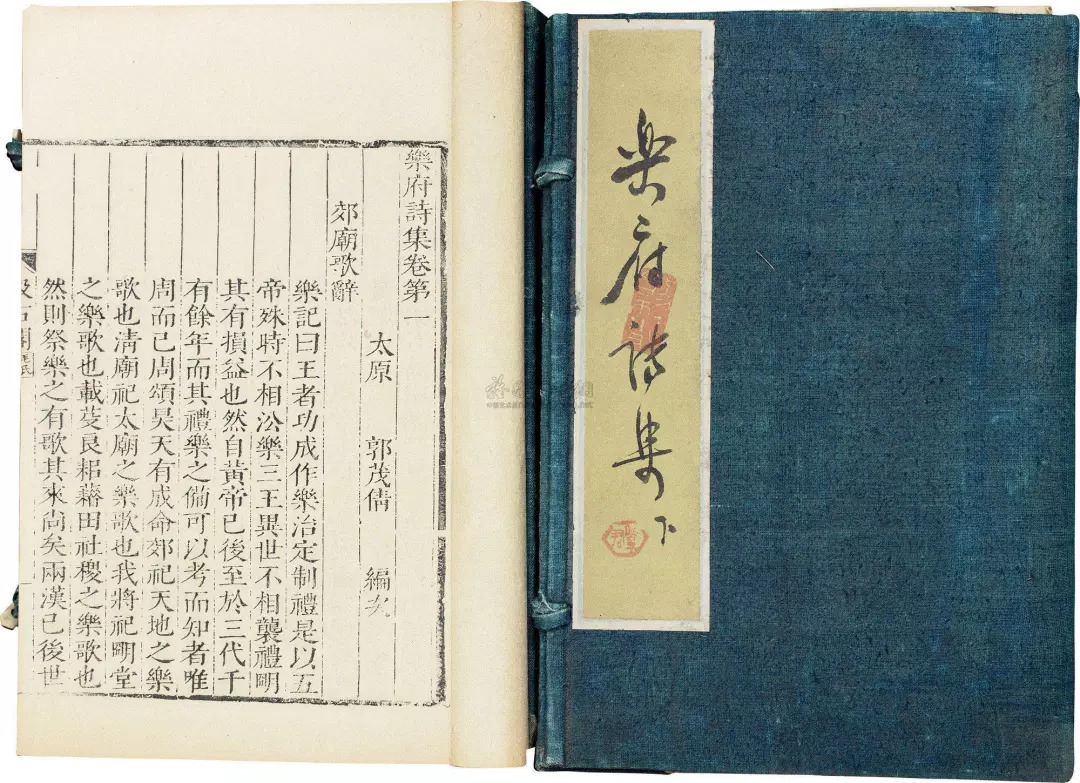 樂府詩集卷第一
太原 郭茂倩 編次
郊廟歌辭
樂記曰王者功成作樂治定制禮是以五
帝殊時不相沿樂三王異世不相襲禮明
其有損益也然自黃帝已後至於三代千
有餘年而其禮樂之備可以考而知者唯
周而已周頌昊天有成命郊祀天地之樂
歌也清廟祀太廟之樂歌也我將祀明堂
之樂歌也載芟良耜藉田社稷之樂歌也
然則祭樂之有歌其來尚矣兩漢已後世
樂府詩集 下